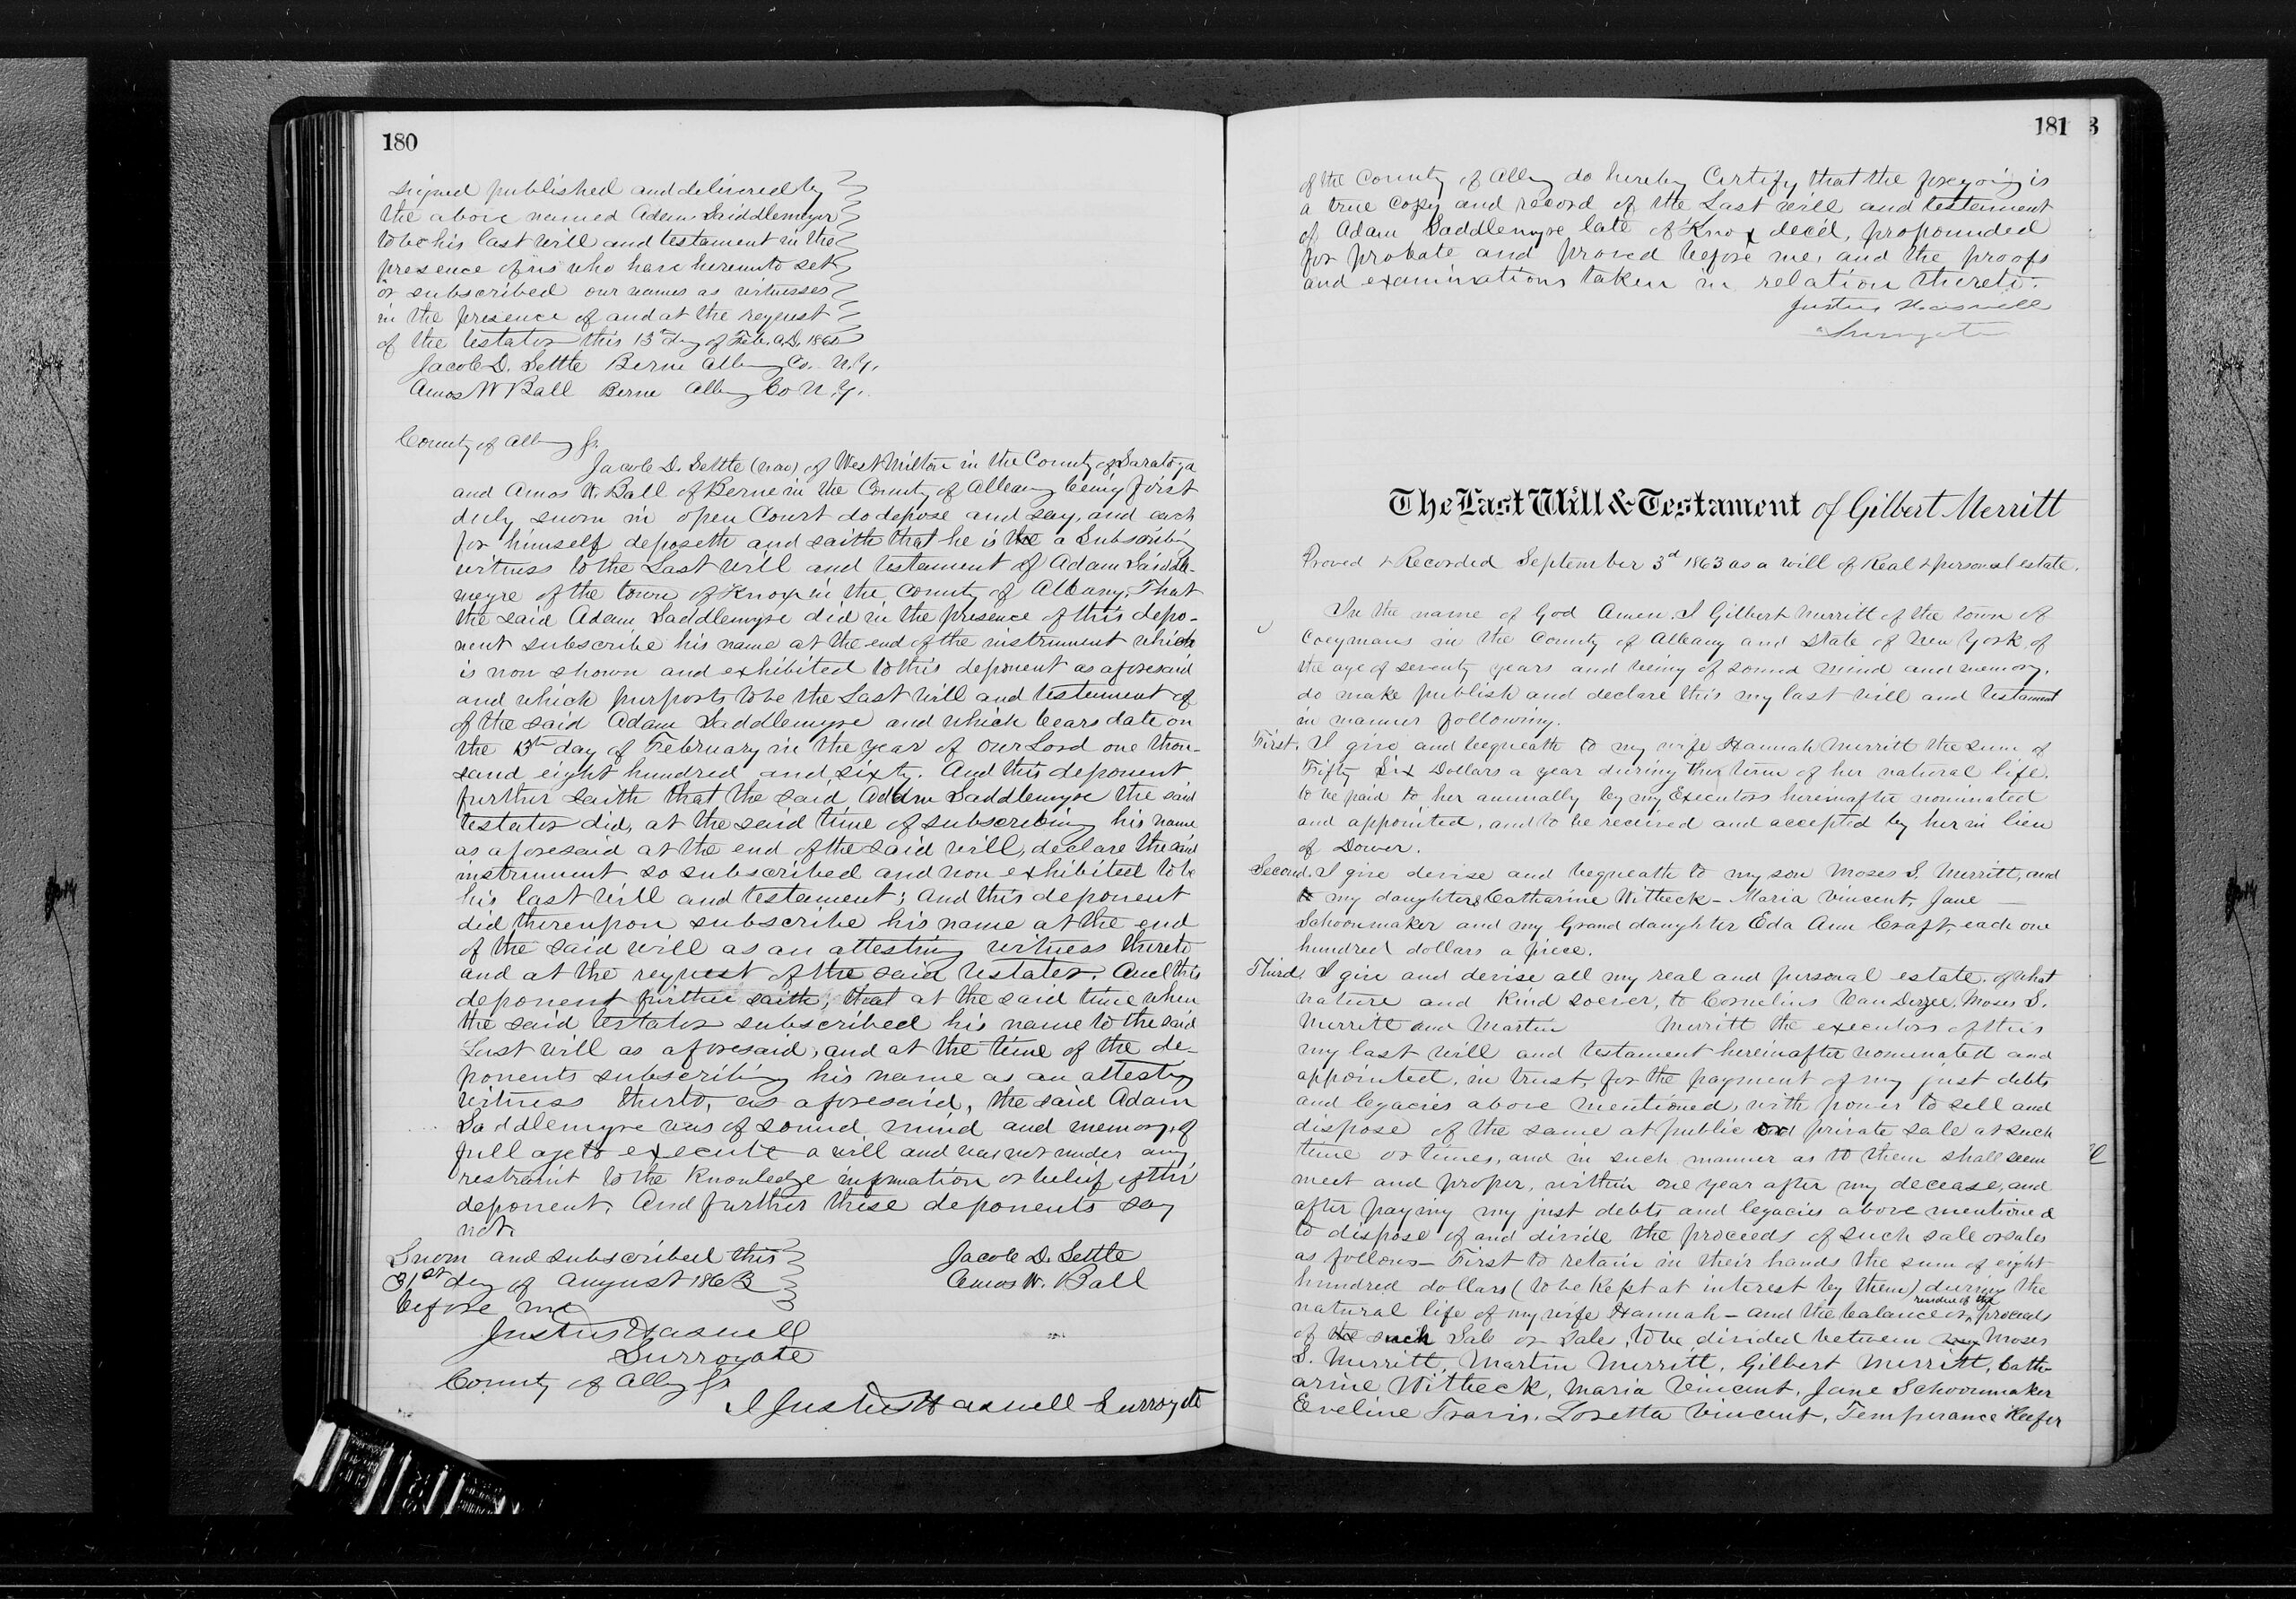 180
signed published and delivered by
the above named Adam Saiddlemeyer
to be his last will and testament in the
presence of us who have hereunto set
or subscribed our names as witnesses
in the presence of and at the request
of the testator this 13th day of Feb. A.D. 1860
Jacob D. Settle Berne Albany Co. N.Y.
Amos W Ball Berne Albany Co N.Y.
County of Albany Ss.
Jacob D. Settle (now) of West Milton in the County of Saratoga
and Amos W. Ball of Berne in the County of Albany being first
duly sworn in open Court do depose and say, and each
for himself deposeth and saith that he is the a Subscribing
witness to the Last will and testament of Adam Saiddle-
meyre of the town of Knox in the County of Albany, That
the said Adam Saddlemyre did in the presence of this depo-
nent subscribe his name at the end of the instrument which
is now shown and exhibited to this deponent as aforesaid
and which purports to be the Last will and testament of
of the said Adam Saddlemyre and which bears date on
the 13th day of February in the year of our Lord one thou-
sand eight hundred and sixty. And this deponent
further saith that the said Adam Saddlemyre the said
testator did, at the said time of subscribing his name
as aforesaid at the end of the said will, declare the said
instrument so subscribed and now exhibited to be
his last will and testament; and this deponent
did thereupon subscribe his name at the end
of the said will as an attesting witness thereto
and at the request of the said testator. And this
deponent further saith; that at the said time when
the said testator subscribed his name to the said
Last will as aforesaid, and at the time of the de-
ponents subscribing his name as an attesting
witness thereto, as aforesaid, the said Adam
Saddlemyre was of sound mind and memory, of
full age to execute a will and was not under any
restraint to the knowledge information or belief of this
deponent. And further these deponents say
not.
Sworn and subscribed this
31st day of August 1863
before me
Jacob D. Settle
Amos W. Ball
Justus Haswell
Surrogate
County of Albany Ss
I Justus Haswell Surrogate
181 3
of the County of Albany do hereby Certify that the foregoing is
a true copy and record of the Last will and testament
of Adam Saddlemyre late of Knox dec'd, propounded
for probate and proved before me, and the proofs
and examinations taken in relation thereto.
Justus Haswell
Surrogate
The Last Will & Testament of Gilbert Merritt
Proved & Recorded September 3d 1863 as a will of Real & personal estate.
In the name of God Amen. I Gilbert Merritt of the town of
Coeymans in the County of Albany and State of New York, of
the age of seventy years and being of sound mind and memory,
do make publish and declare this my last will and testament
in manner following.
First. I give and bequeath to my wife Hannah Merritt the sum of
Fifty Six Dollars a year during the term of her natural life.
to be paid to her annually by my Executors hereinafter nominated
and appointed, and to be received and accepted by her in lieu
of Dower.
Second. I give devise and bequeath to my son Moses S. Merritt, and
to my daughters Catharine Witbeck - Maria Vincent, Jane
Schoonmaker and my Grand daughter Eda Ann Craft, each one
hundred dollars a piece.
Third, I give and devise all my real and personal estate, of what
nature and kind soever, to Cornelius Van Derzee, Moses S.
Merritt and Martin Merritt the executors of this
my last will and testament hereinafter nominated and
appointed, in trust, for the payment of my just debts
and legacies above mentioned, with power to sell and
dispose of the same at public or private sale at such
time or times, and in such manner as to them shall seem
meet and proper, within one year after my decease, and
after paying my just debts and legacies above mentioned
to dispose of and divide the proceeds of such sale or sales
as follows - First to retain in their hands the sum of eight
hundred dollars (to be kept at interest by them) during the
natural life of my wife Hannah - and the balance or residue of the proceeds
of the such Sale or Sales, to be divided between my Moses
S. Merritt, Martin Merritt, Gilbert Merritt, Cath-
arine Witbeck, Maria Vincent, Jane Schoonmaker
Eveline Travis, Loretta Vincent, Temperance Keefer